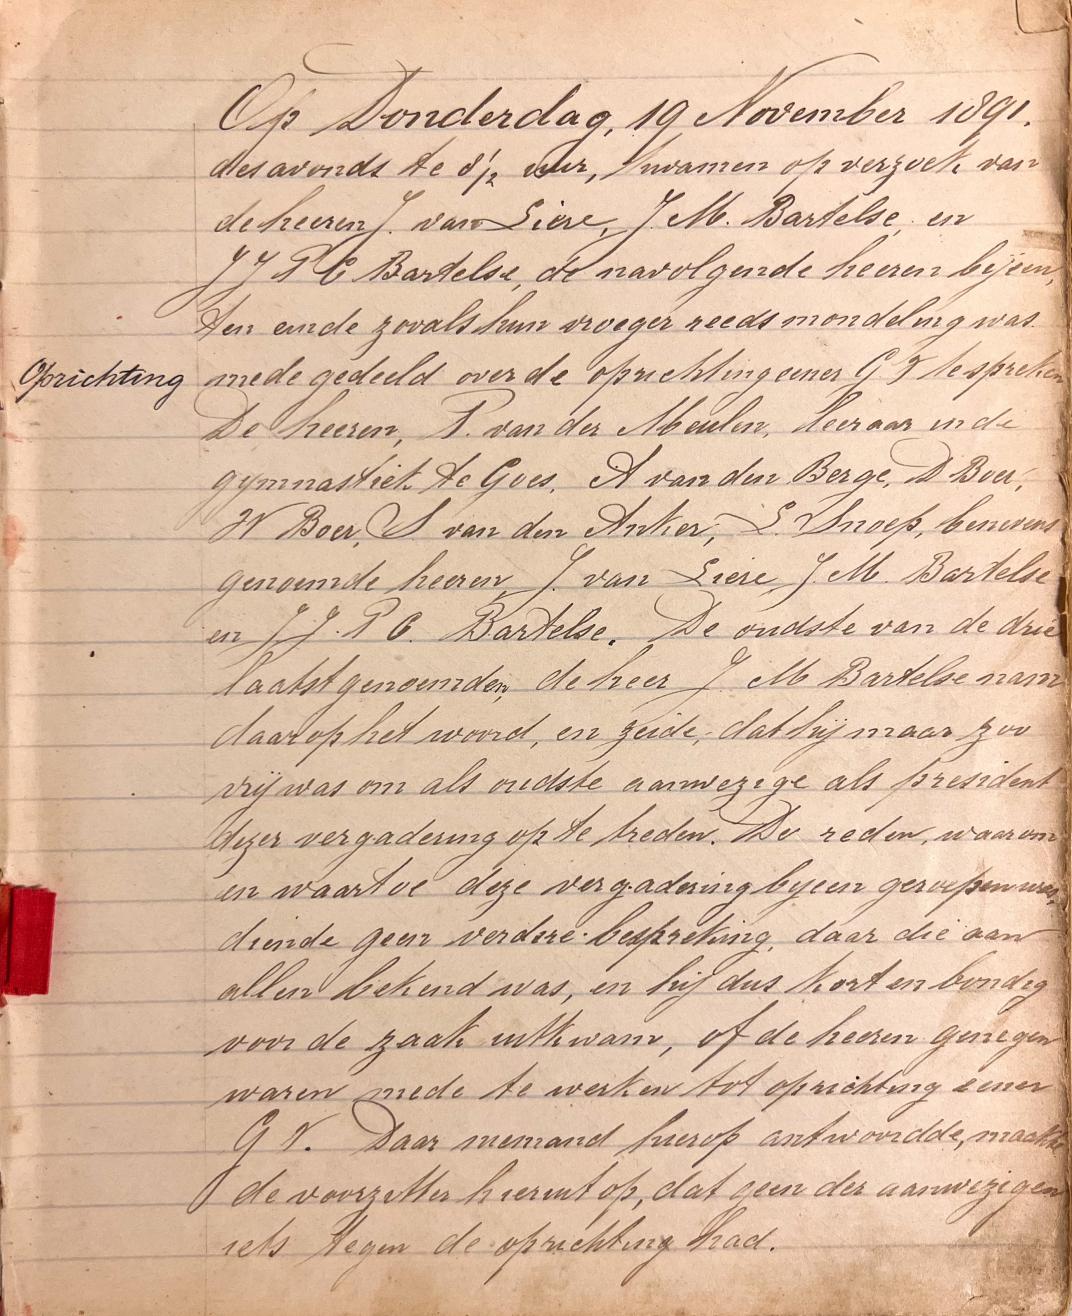 Op Donderdag, 19 November 1891.
des avonds te 8 1/2 uur, kwamen op verzoek van
de heeren J. van Liere, J. M. Bartelse en
J J P C Bartelse, de navolgende heeren bijeen,
ten einde zooals hun vroeger reeds mondeling was
Oprichting
mede gedeeld over de oprichting eener G V te spreken
De heeren, P. van der Meulen, leeraar in de
gymnastiek te Goes, A van den Berge, D Boer,
W Boer, S van den Anker, L. Snoep, benevens
genoemde heeren J. van Liere J. M. Bartelse
en J J. P C. Bartelse. De oudste van de drie
laatstgenoemden, de heer J. M Bartelse nam
daarop het woord, en zeide, dat hij maar zoo
vrij was om als oudste aanwezige als president
dezer vergadering op te treden. De reden, waarom
en waartoe deze vergadering bijeen geroepen was,
diende geen verdere bespreking, daar die aan
allen bekend was, en hij dus kort en bondig
voor de zaak uitkwam, of de heeren genegen
waren mede te werken tot oprichting eener
G V. Daar niemand hierop antwoordde, maakte
de voorzitter hieruit op, dat geen der aanwezigen
iets tegen de oprichting had.